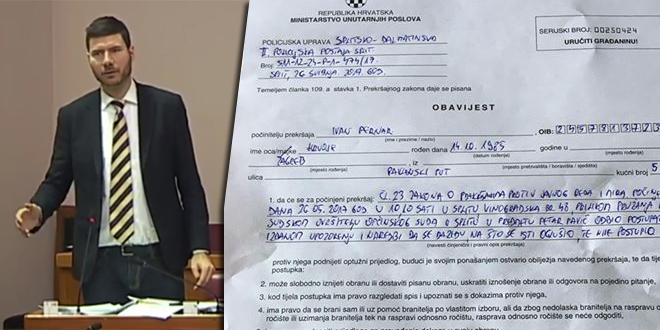 REPUBLIKA HRVATSKA
MINISTARSTVO UNUTARNJIH POSLOVA
SERIJSKI BROJ: 00250424
URUČITI GRAĐANINU!
POLICIJSKA UPRAVA SPLITSKO-DALMATINSKA
II POLICIJSKA POSTAJA SPLIT
Broj: 511-12-24-P-1-474/17.
SPLIT, 26. SVIBNJA 2017 GOD.
Temeljem članka 109. a stavka 1. Prekršajnog zakona daje se pisana
OBAVIJEST
počinitelju prekršaja IVAN PERNAR, OIB:
(ime i prezime / naziv)
ime oca/majke rođen dana 14.10.1985 godine u
(datum rođenja)
ZAGREB, iz
(mjesto rođenja) (mjesto prebivališta / boravišta / sjedišta)
ulica PAKOŠNSKI PUT kućni broj 5
1. da će se za počinjeni prekršaj: ČL. 23 ZAKONA O PREKRŠAJIMA PROTIV JAVNOG REDA I MIRA
DANA 26.05.2017 GOD. U 10,10 SATI U SPLITU VINOGRADSKA BR. 48 PRILIKOM PRUŽANJA
SUDSKOM OVRŠITELJU OPĆINSKOG SUDA U SPLITU U PREDMETU PETAR PAVIĆ ODBIO
IZDANOM UPOZORENJU I NAREDBI DA SE NA ŠTO SE ISTI OGLUŠIO TE NIJE POSTUPIO
(navesti činjenični i pravni opis prekršaja)
protiv njega podnijeti optužni prijedlog, budući je svojim ponašanjem ostvario obilježja navedenog prekršaja, te da
postupka:
2. može slobodno iznijeti obranu ili dostaviti pisanu obranu, uskratiti iznošenje obrane ili odgovora na pojedino pitanje,
3. kod tijela postupka ima pravo razgledati spis i upoznati se s dokazima protiv njega.
4. ima pravo da se brani sam ili uz pomoć branitelja po vlastitom izboru, ali da zbog nedolaska branitelja na raspravu
ročište ili uzimanja branitelja tek na raspravi odnosno ročištu, rasprava odnosno ročište se neće odgoditi,